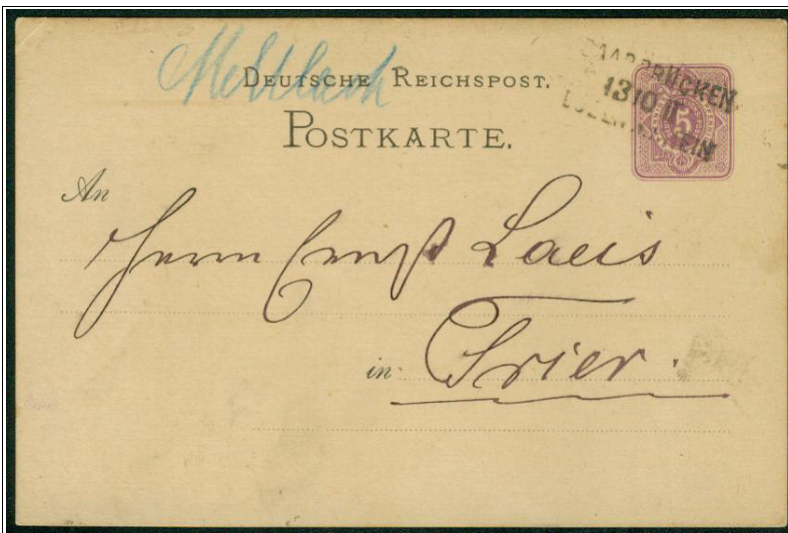 Mettlach
DEUTSCHE REICHSPOST.
POSTKARTE.
SAARBRÜCKEN
13 10 II
5
An
Herrn Ernst Laeis
in Trier.